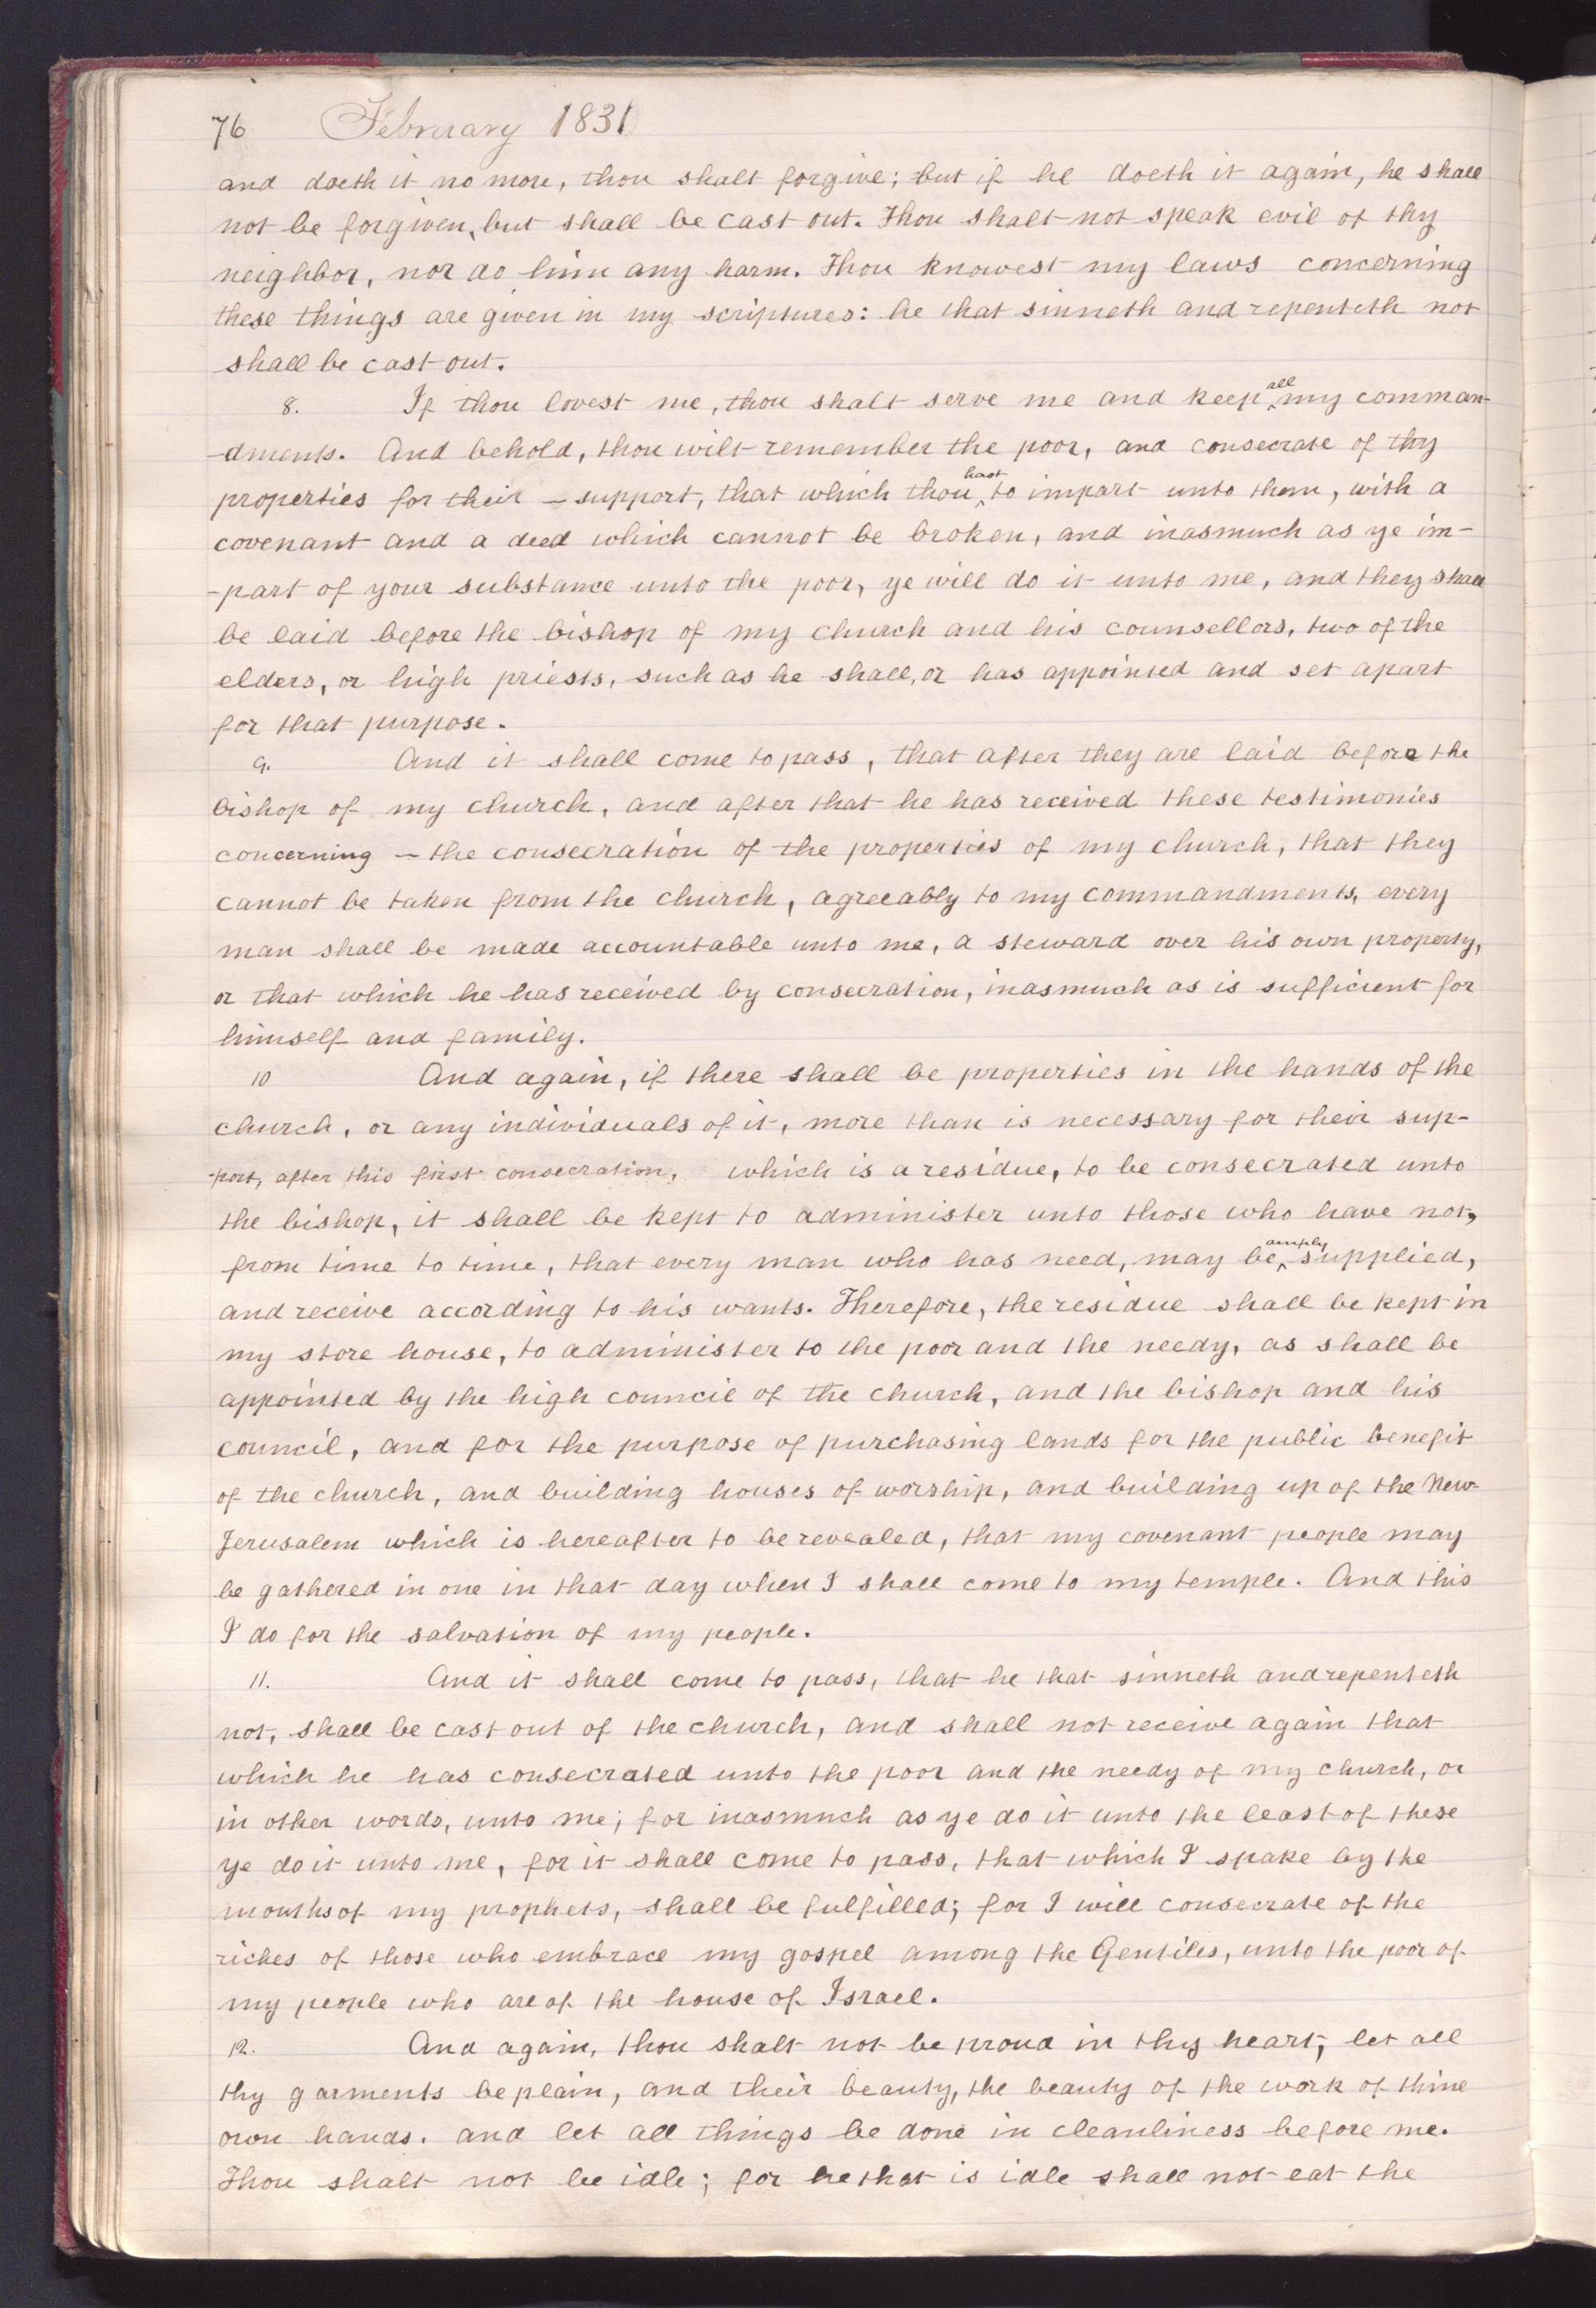 76 February 1831
and doeth it no more, thou shalt forgive; but if he doeth it again, he shall
not be forgiven, but shall be cast out. Thou shalt not speak evil of thy
neighbor, nor do him any harm. Thou knowest my laws concerning
these things are given in my scriptures: he that sinneth and repenteth not
shall be cast out.
8. If thou lovest me, thou shalt serve me and keep ^all my comman-
-dments. And behold, thou wilt remember the poor, and consecrate of thy
properties for their – support, that which thou ^hast to impart unto them, with a
covenant and a deed which cannot be broken, and inasmuch as ye im-
-part of your substance unto the poor, ye will do it unto me, and they shall
be laid before the bishop of my church and his counsellors, two of the
elders, or high priests, such as he shall, or has appointed and set apart
for that purpose.
9. And it shall come to pass, that after they are laid before the
bishop of my church, and after that he has received these testimonies
concerning – the consecration of the properties of my church, that they
cannot be taken from the church, agreeably to my commandments, every
man shall be made accountable unto me, a steward over his own property,
or that which he has received by consecration, inasmuch as is sufficient for
himself and family.
10 And again, if there shall be properties in the hands of the
church, or any individuals of it, more than is necessary for their sup-
-port, after this first consecration, which is a residue, to be consecrated unto
the bishop, it shall be kept to administer unto those who have not,
from time to time, that every man who has need, may be ^amply supplied,
and receive according to his wants. Therefore, the residue shall be kept in
my store house, to administer to the poor and the needy, as shall be
appointed by the high council of the church, and the bishop and his
council, and for the purpose of purchasing lands for the public benefit
of the church, and building houses of worship, and building up of the New-
Jerusalem which is hereafter to be revealed, that my covenant people may
be gathered in one in that day when I shall come to my temple. And this
I do for the salvation of my people.
11. And it shall come to pass, that he that sinneth and repenteth
not, shall be cast out of the church, and shall not receive again that
which he has consecrated unto the poor and the needy of my church, or
in other words, unto me; for inasmuch as ye do it unto the least of these
ye do it unto me, for it shall come to pass, that which I spake by the
mouths of my prophets, shall be fulfilled; for I will consecrate of the
riches of those who embrace my gospel among the Gentiles, unto the poor of
my people who are of the house of Israel.
12. And again, thou shalt not be proud in thy heart; let all
thy garments be plain, and their beauty, the beauty of the work of thine
own hands. and let all things be done in cleanliness before me.
Thou shalt not be idle; for he that is idle shall not eat the